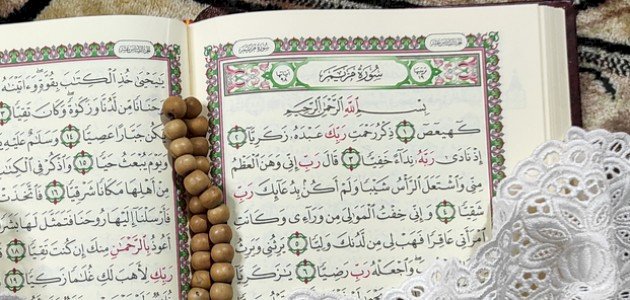 سُورَةُ مَرْيَمَ
سُورَةُ مَرْيَمَ
بِسْمِ اللَّهِ الرَّحْمَٰنِ الرَّحِيمِ
كٓهيعٓصٓ ١ ذِكْرُ رَحْمَتِ رَبِّكَ عَبْدَهُۥ زَكَرِيَّآ ٢
إِذْ نَادَىٰ رَبَّهُۥ نِدَآءً خَفِيًّا ٣ قَالَ رَبِّ إِنِّي وَهَنَ ٱلْعَظْمُ
مِنِّي وَٱشْتَعَلَ ٱلرَّأْسُ شَيْبًا وَلَمْ أَكُنۢ بِدُعَآئِكَ رَبِّ
شَقِيًّا ٤ وَإِنِّي خِفْتُ ٱلْمَوَٰلِيَ مِن وَرَآءِي وَكَانَتِ
ٱمْرَأَتِي عَاقِرًا فَهَبْ لِي مِن لَّدُنكَ وَلِيًّا ٥ يَرِثُنِي وَيَرِثُ
وَٱجْعَلْهُ رَبِّ رَضِيًّا ٦ يَٰزَكَرِيَّآ
سُورَةُ مَرْيَمَ
يَٰيَحْيَىٰ خُذِ ٱلْكِتَٰبَ بِقُوَّةٍ وَءَاتَيْنَٰهُ
وَحَنَانًا مِّن لَّدُنَّا وَزَكَوٰةً وَكَانَ تَقِيًّا
يَكُن جَبَّارًا عَصِيًّا ١٤ وَسَلَٰمٌ عَلَيْهِ
وَيَوْمَ يُبْعَثُ حَيًّا ١٥ وَٱذْكُرْ فِي ٱلْكِتَٰبِ
مِنْ أَهْلِهَا مَكَانًا شَرْقِيًّا ١٦ فَٱتَّخَذَتْ
فَأَرْسَلْنَآ إِلَيْهَا رُوحَنَا فَتَمَثَّلَ لَهَا بَشَرًا
أَعُوذُ بِٱلرَّحْمَٰنِ مِنكَ إِن كُنتَ تَقِيًّا ١٨
رَبِّكِ لِأَهَبَ لَكِ غُلَٰمًا زَكِيًّا ١٩